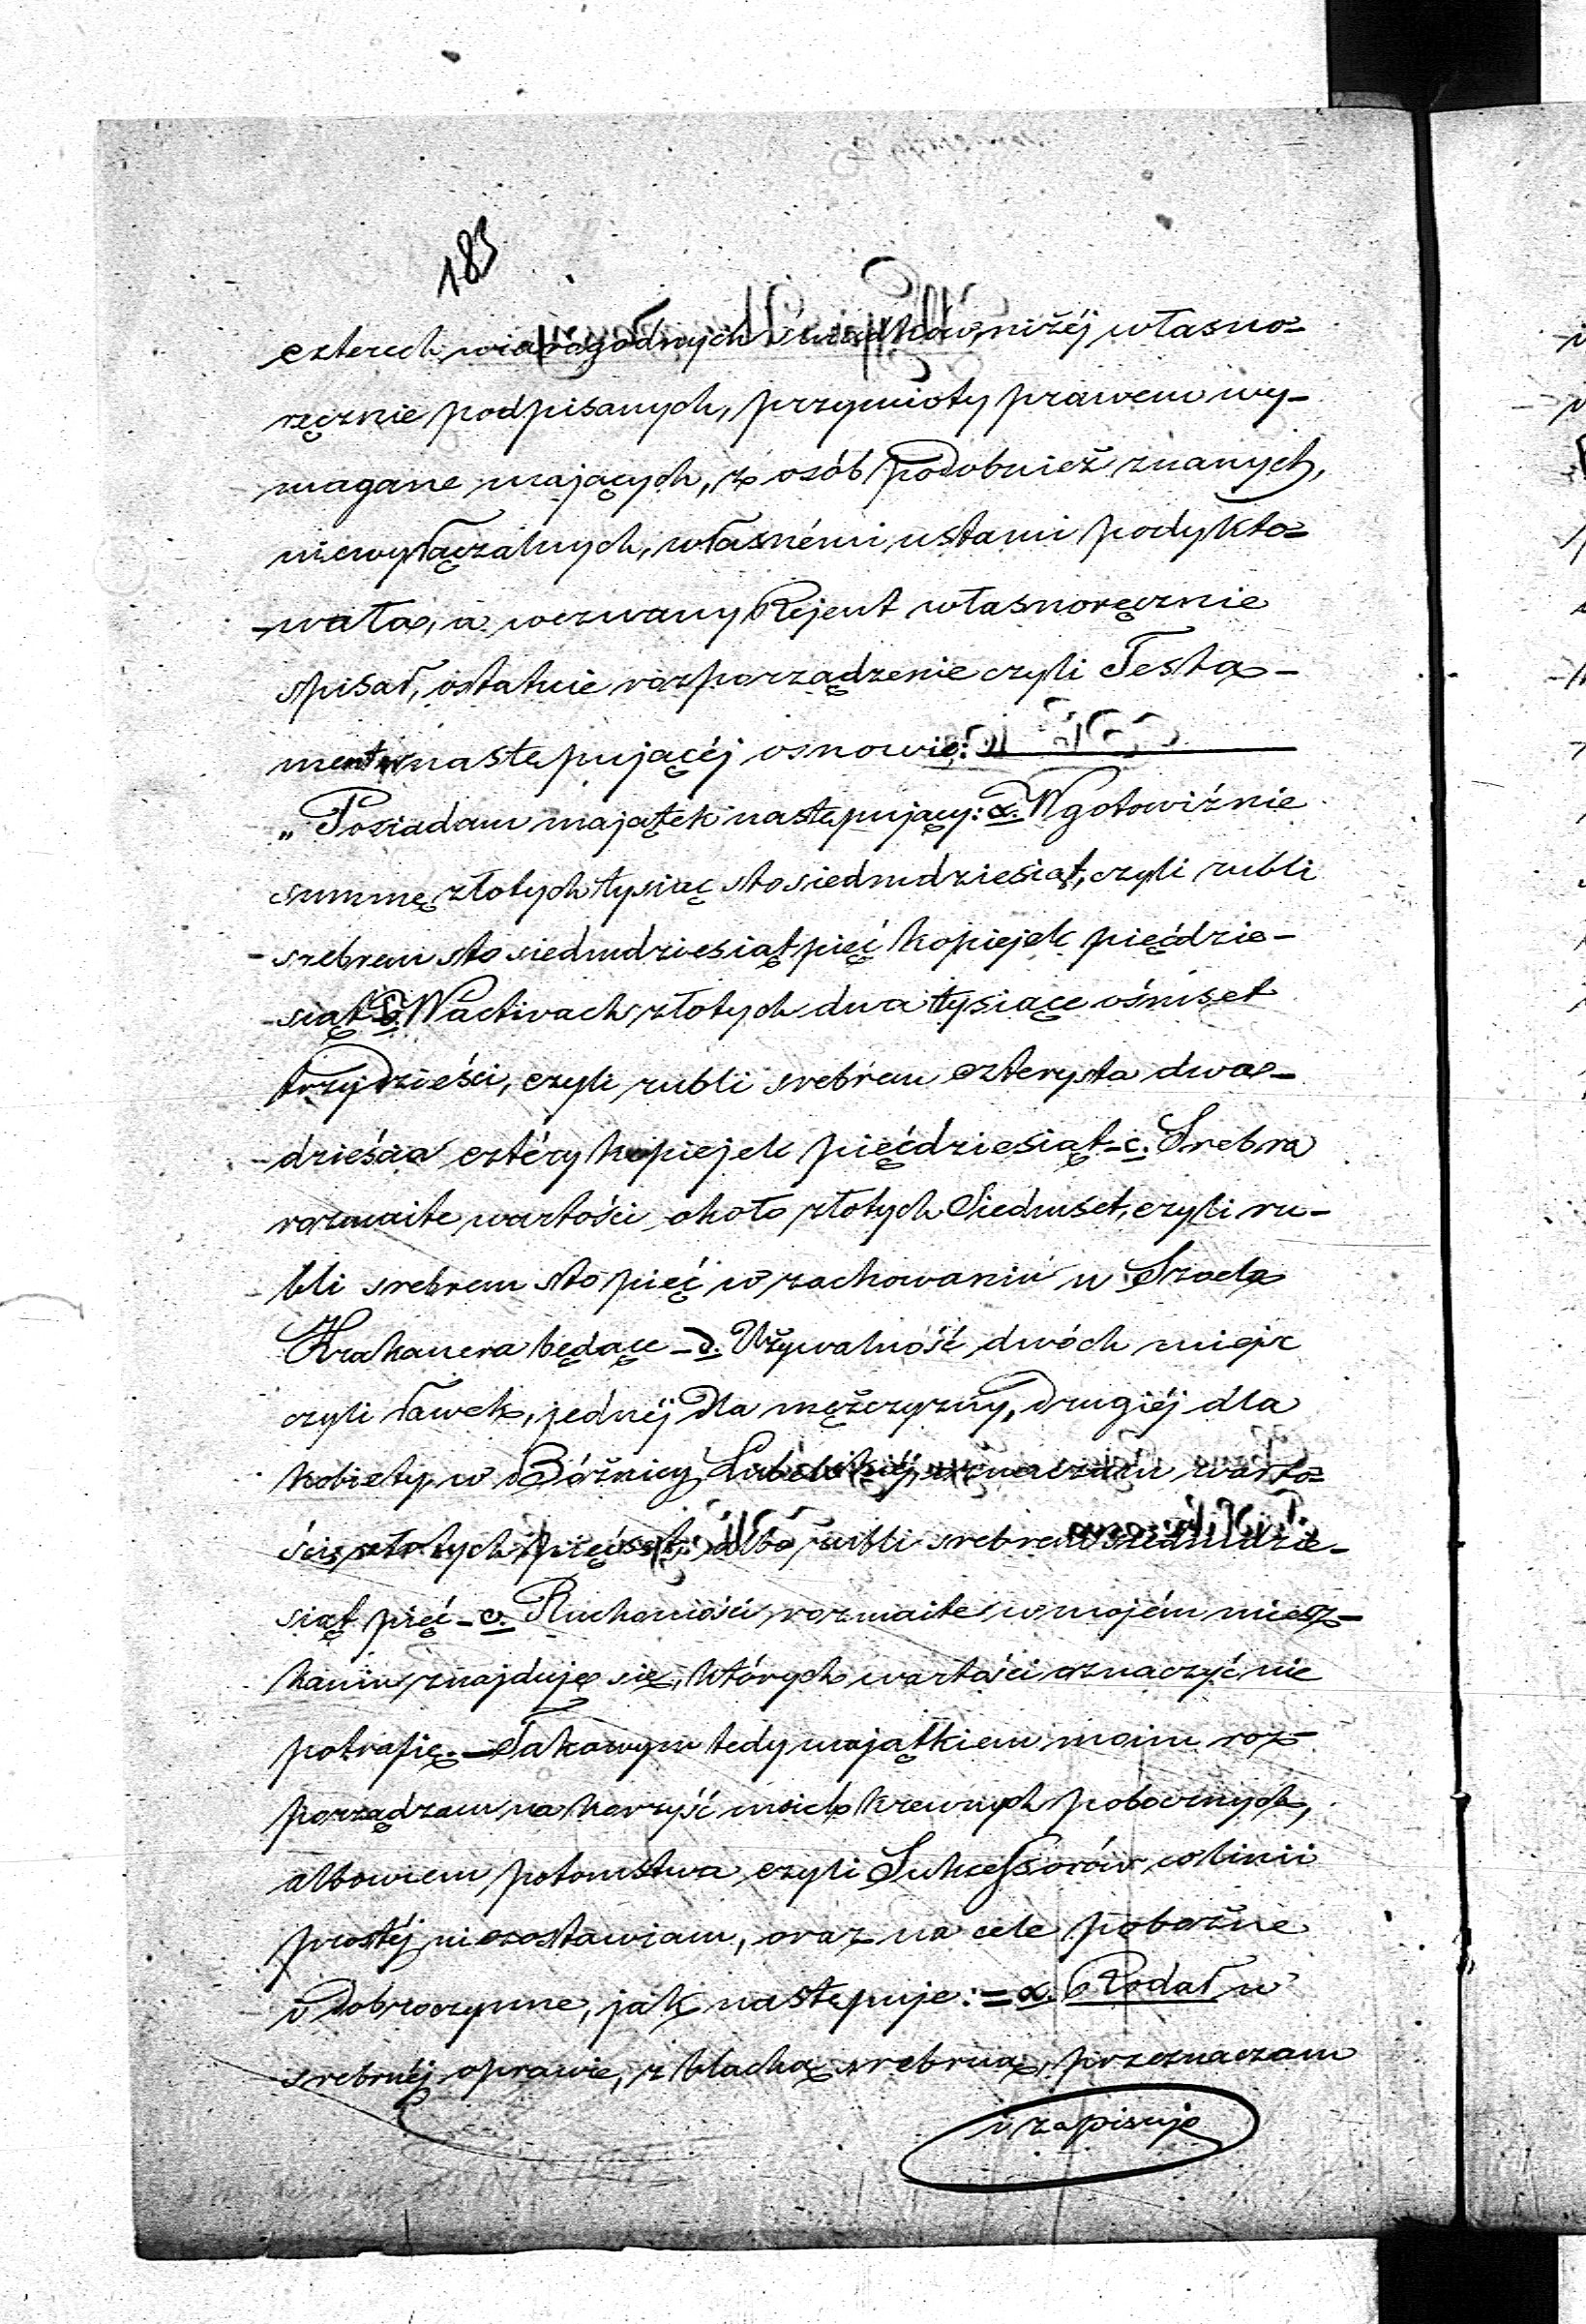 183
czterech wiarogodnych świadków, niżéj własno=
ręcznie podpisanych, przymioty prawem wy-
magane mających, z osób podobnież znanych,
niewyłączalnych, własnémi ustami podykto=
-wała, a wezwany Rejent własnoręcznie
spisał, ostatnie rozporządzenie czyli Testa-
ment w następującéj osnowie:
„Posiadam majątek następujący: a. W gotowiźnie
summę złotych tysiąc sto siedmdziesiąt, czyli rubli
-srebrem sto siedmdziesiąt pięć kopiejek pięćdzie-
-siąt b. W activach złotych dwa tysiące ośmset
trzydzieści, czyli rubli srebrem czterysta dwa-
-dzieścia cztéry kopiejek pięćdziesiąt - c. Srebra
rozmaite wartości około złotych Siedmset, czyli ru-
bli srebrem sto pięć w zachowaniu u Szoela
Krakauera będące - d. Używalność dwóch miejsc
czyli ławek, jednéj dla mężczyzny, drugiéj dla
kobiety, w Bóżnicy Lubelskiéj, oznaczam warto=
ści złotych pięćset, albo rubli srebrem siedmdzie-
siąt pięć - e. Ruchomości rozmaite w mojém miesz-
kaniu znajduję się, których wartości oznaczyć nie
potrafię. - Takowym tedy majątkiem moim roz-
porządzam na korzyść moich krewnych pobocznych,
albowiem potomstwa czyli Sukcessorów w linii
prostéj niezostawiam, oraz na cele pobożne
i dobroczynne, jak następuje: = a. Rodał w
srebrnéj oprawie, z blachą srebrną, przeznaczam
i zapisuję